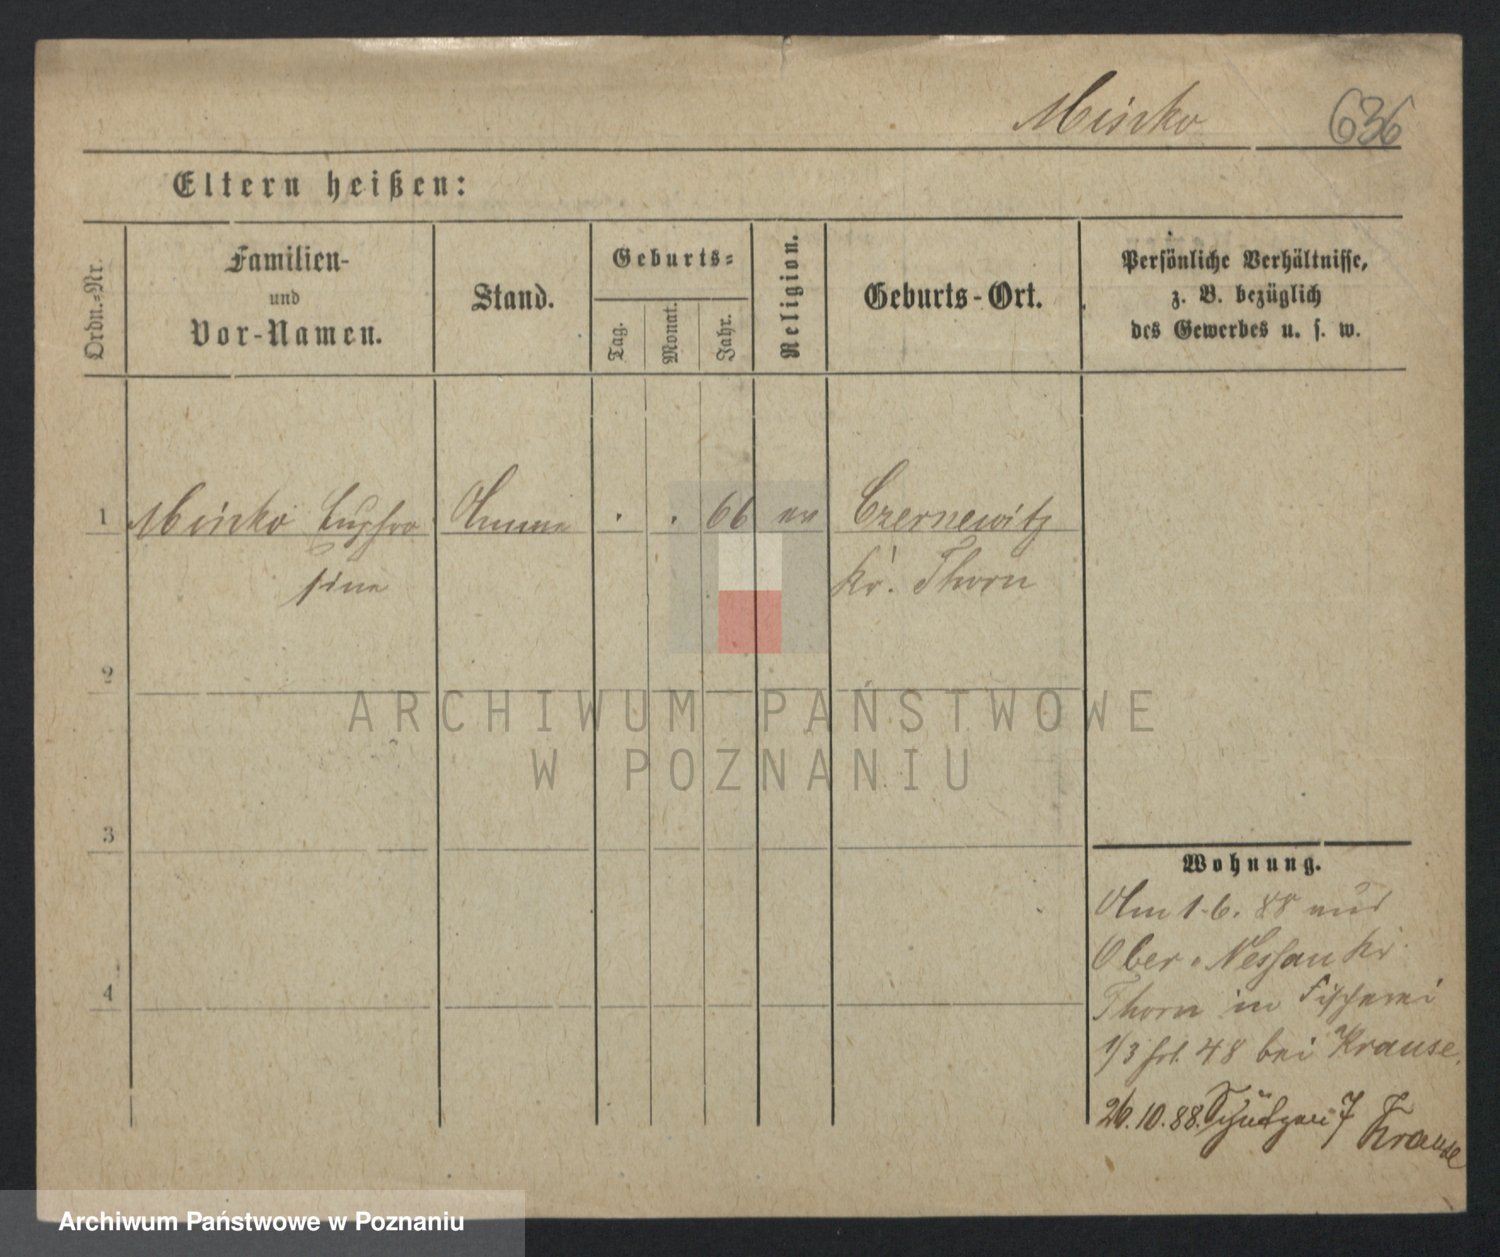 Mischko 636
Eltern heißen:
Ordn.-Nr.
Familien-
und
Vor-Namen.
Stand.
Geburts-
Tag.
Monat.
Jahr.
Religion.
Geburts-Ort.
Persönliche Verhältnisse,
z. B. bezüglich
des Gewerbes u. s. w.
1 Mischko Euphro Amme . . 66 ev Czernewitz
sine Kr. Thorn
2
3
4
Wohnung.
Am 1.6.88 aus
Ober-Nessau Kr
Thorn in Fischerei
1/3 48 bei Krause.
26.10.88. 7 Krause
ARCHIWUM PAŃSTWOWE
W POZNANIU
Archiwum Państwowe w Poznaniu